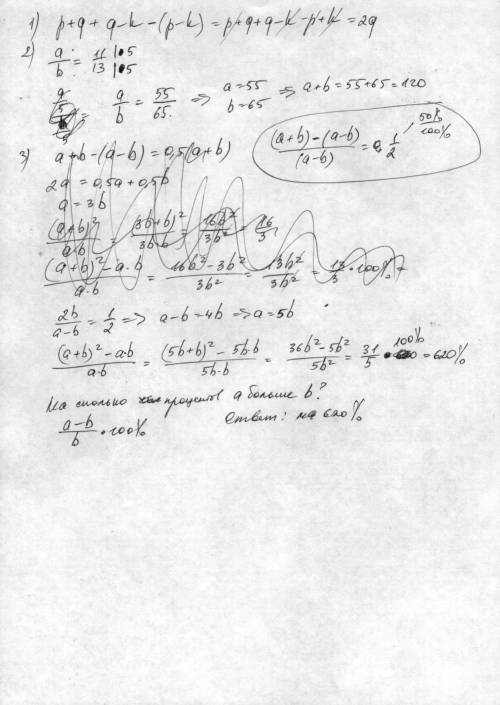 1) p+q+q-k-(p-k) = p+q+q-k-p+k = 2q
2) a/b = 11/13 |•5 |•5
a/b = 55/65 => a=55 b=65 => a+b=55+65=120
((a+b)-(a-b))/(a-b) = 1/2 50%/100%
3) a+b-(a-b)=0,5(a+b)
2a=0,5a+0,5b
a=3b
(a+b)²/(a·b) = (3b+b)²/(3b·b) = 16b²/3b² = 16/3
((a+b)²-a·b)/(a·b) = (16b²-3b²)/3b² = 13b²/3b² = 13/3·100%
2b/(a-b) = 1/2 => a-b=4b => a=5b
((a+b)²-a·b)/(a·b) = ((5b+b)²-5b·b)/(5b·b) = (36b²-5b²)/5b² = 31/5 • 100% = 620%
На сколько процентов a больше b?
(a-b)/b • 100%
Ответ: на 620%